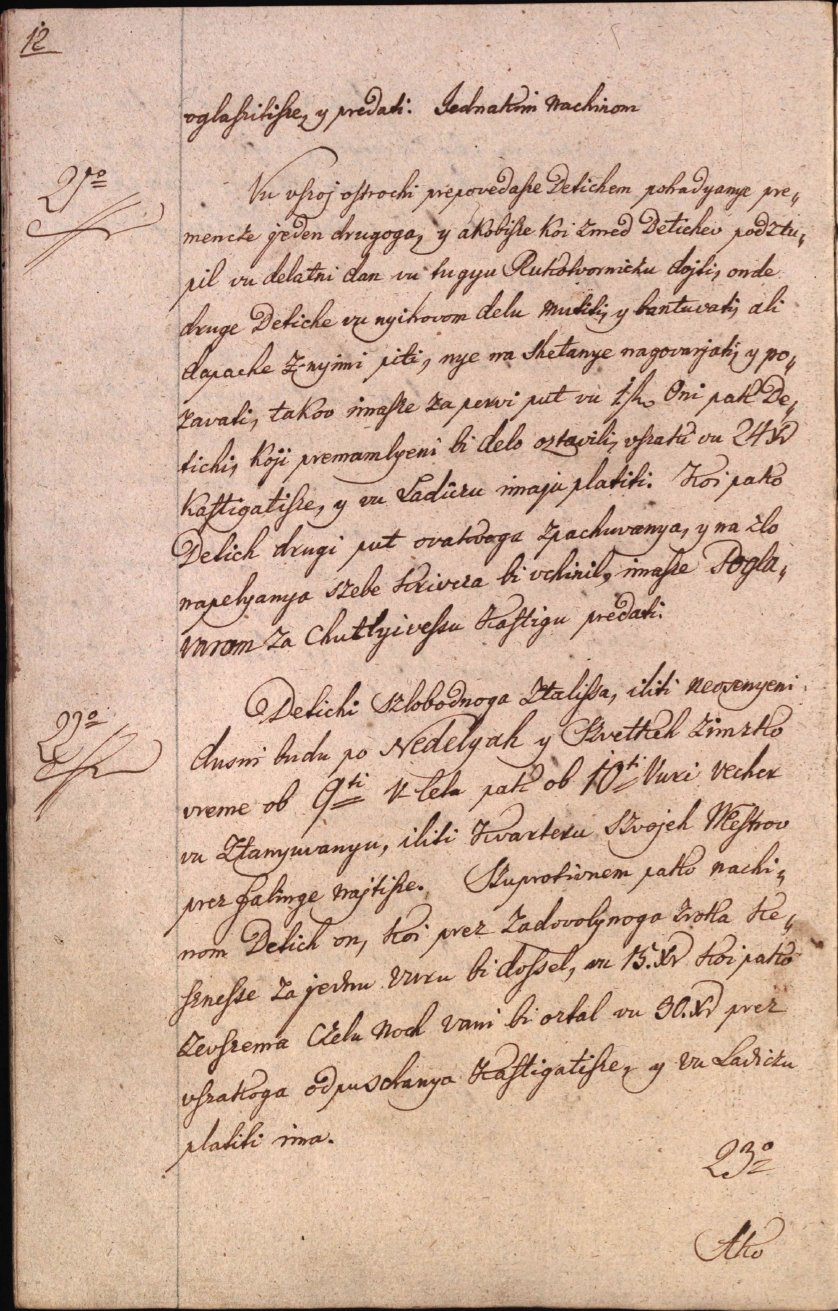 12
oglaszitisze, y predati. Jednakim Nachinom
21mo
Vu vszoj ostrochi prepovedasze Detichem pohadyanye pre„
mencze jeden drugoga, y akobisze koi zmed Detichev podztu„
pil vu delatni dan vu tugyu Rukotvornichu dojti, onde
druge Detiche vu nyihovom delu mutiti, y bantuvati, ali
dapache z-nyimi piti, nye na Shetanye nagovarjati, y po„
zavati, takov imasze za pervi put vu 1 fh. Oni pak De„
tichi, koji premamlyeni bi delo oztavili, vszaki vu 24 Xr
kastigatisze, y vu Ladiczu imaju platiti. Koi pako
Detich drugi put ovakvoga zpachuvanya, y na zlo
napelyanya szebe krivcza bi vchinil, imasze Pogla„
varom za Chutlyivessu kastigu predati.
22do
Detichi Szlobodnoga Ztalissa, iliti neosenyeni
dusni budu po Nedelyah y Szvetkeh Zimzko
vreme ob 9ti V letu pak ob 10ti Vuri Vecher
vu Ztanyuvanyu, iliti Kvarteru Szvojeh Mestrov
prez falinge najtisze. Szuprotivnem pako nachi„
nom Detich on, koi prez zadovolynoga zroka ke„
sznesse za jednu vuru bi dossel, vu 15. Xr koi pako
zevszema Czelu Noch vani bi oztal vu 30. Xr prez
vszakoga odpuschanya kastigatisze, y vu Ladiczu
platiti ima.
23o
Ako